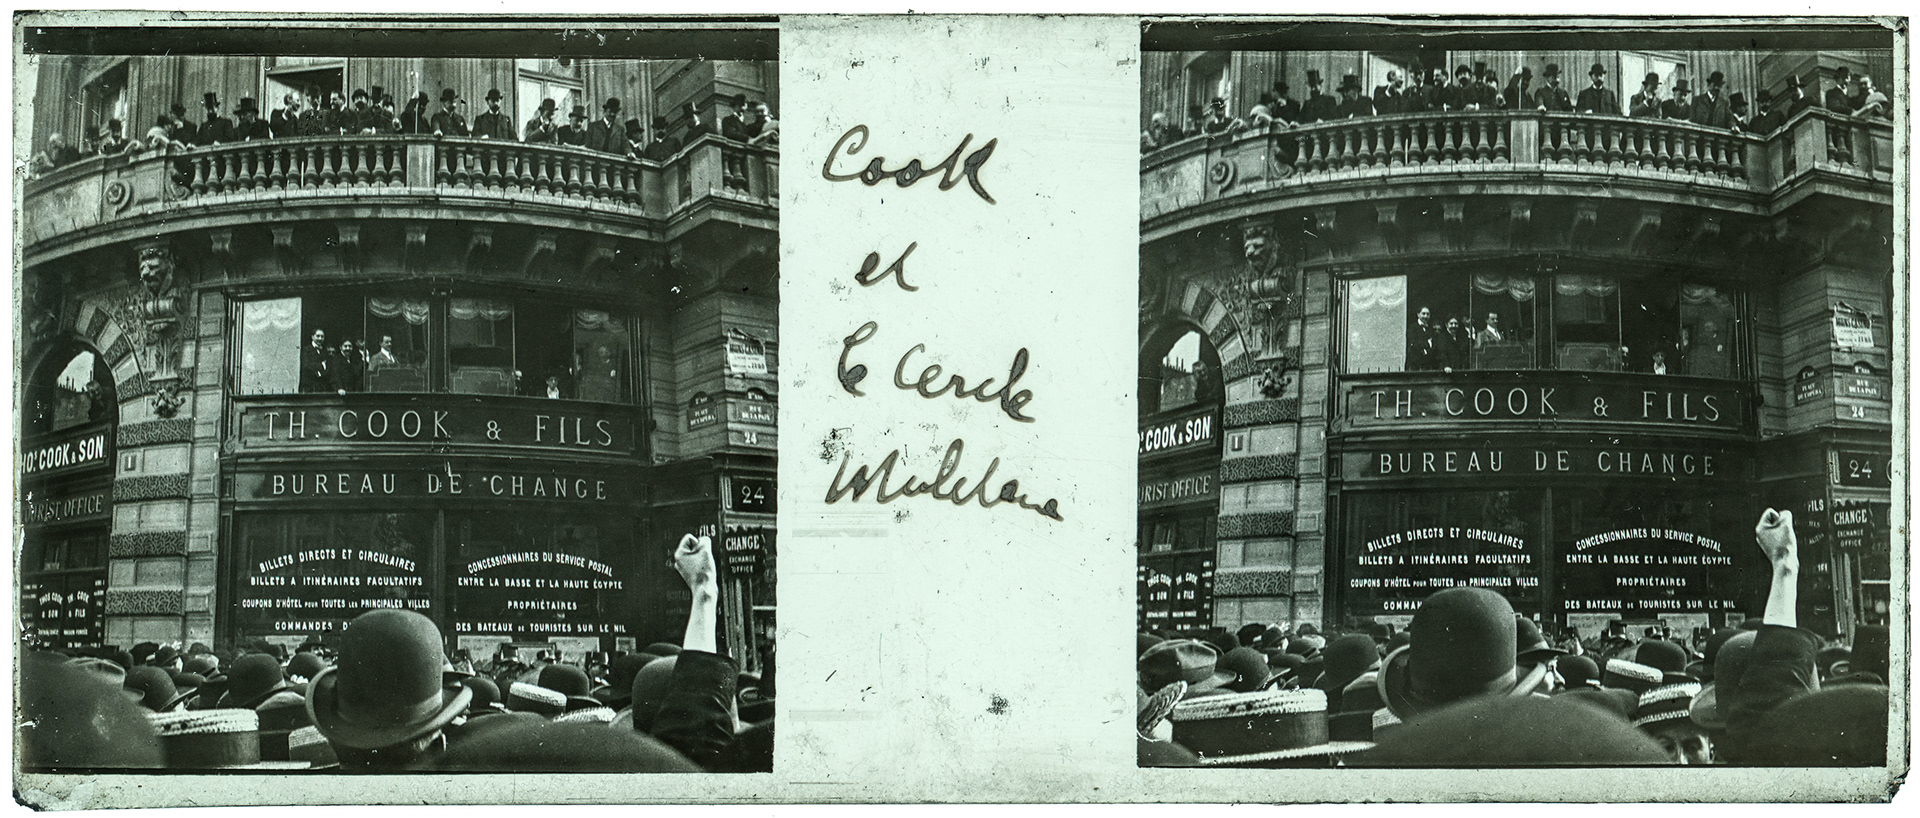 TH. COOK & FILS
BUREAU DE CHANGE
HOS. COOK & SON
URIST OFFICE
BILLETS DIRECTS ET CIRCULAIRES
BILLETS A ITINÉRAIRES FACULTATIFS
COUPONS D'HÔTEL POUR TOUTES LES PRINCIPALES VILLES
COMMANDES D
CONCESSIONNAIRES DU SERVICE POSTAL
ENTRE LA BASSE ET LA HAUTE ÉGYPTE
PROPRIÉTAIRES
DES BATEAUX DE TOURISTES SUR LE NIL
THOS COOK
& SON
TH. COOK
& FILS
PLACE
DE L'OPÉRA
RUE
DE LA PAIX
24
24
FILS
CHANGE
EXCHANGE
OFFICE
Cook
et
le Cercle
TH. COOK & FILS
BUREAU DE CHANGE
COOK & SON
URIST OFFICE
BILLETS DIRECTS ET CIRCULAIRES
BILLETS A ITINÉRAIRES FACULTATIFS
COUPONS D'HÔTEL POUR TOUTES LES PRINCIPALES VILLES
COMMAN
CONCESSIONNAIRES DU SERVICE POSTAL
ENTRE LA BASSE ET LA HAUTE ÉGYPTE
PROPRIÉTAIRES
DES BATEAUX DE TOURISTES SUR LE NIL
THOS COOK
& SON
TH. COOK
& FILS
PLACE
DE L'OPÉRA
RUE
DE LA PAIX
24
24
FILS
CHANGE
EXCHANGE
OFFICE